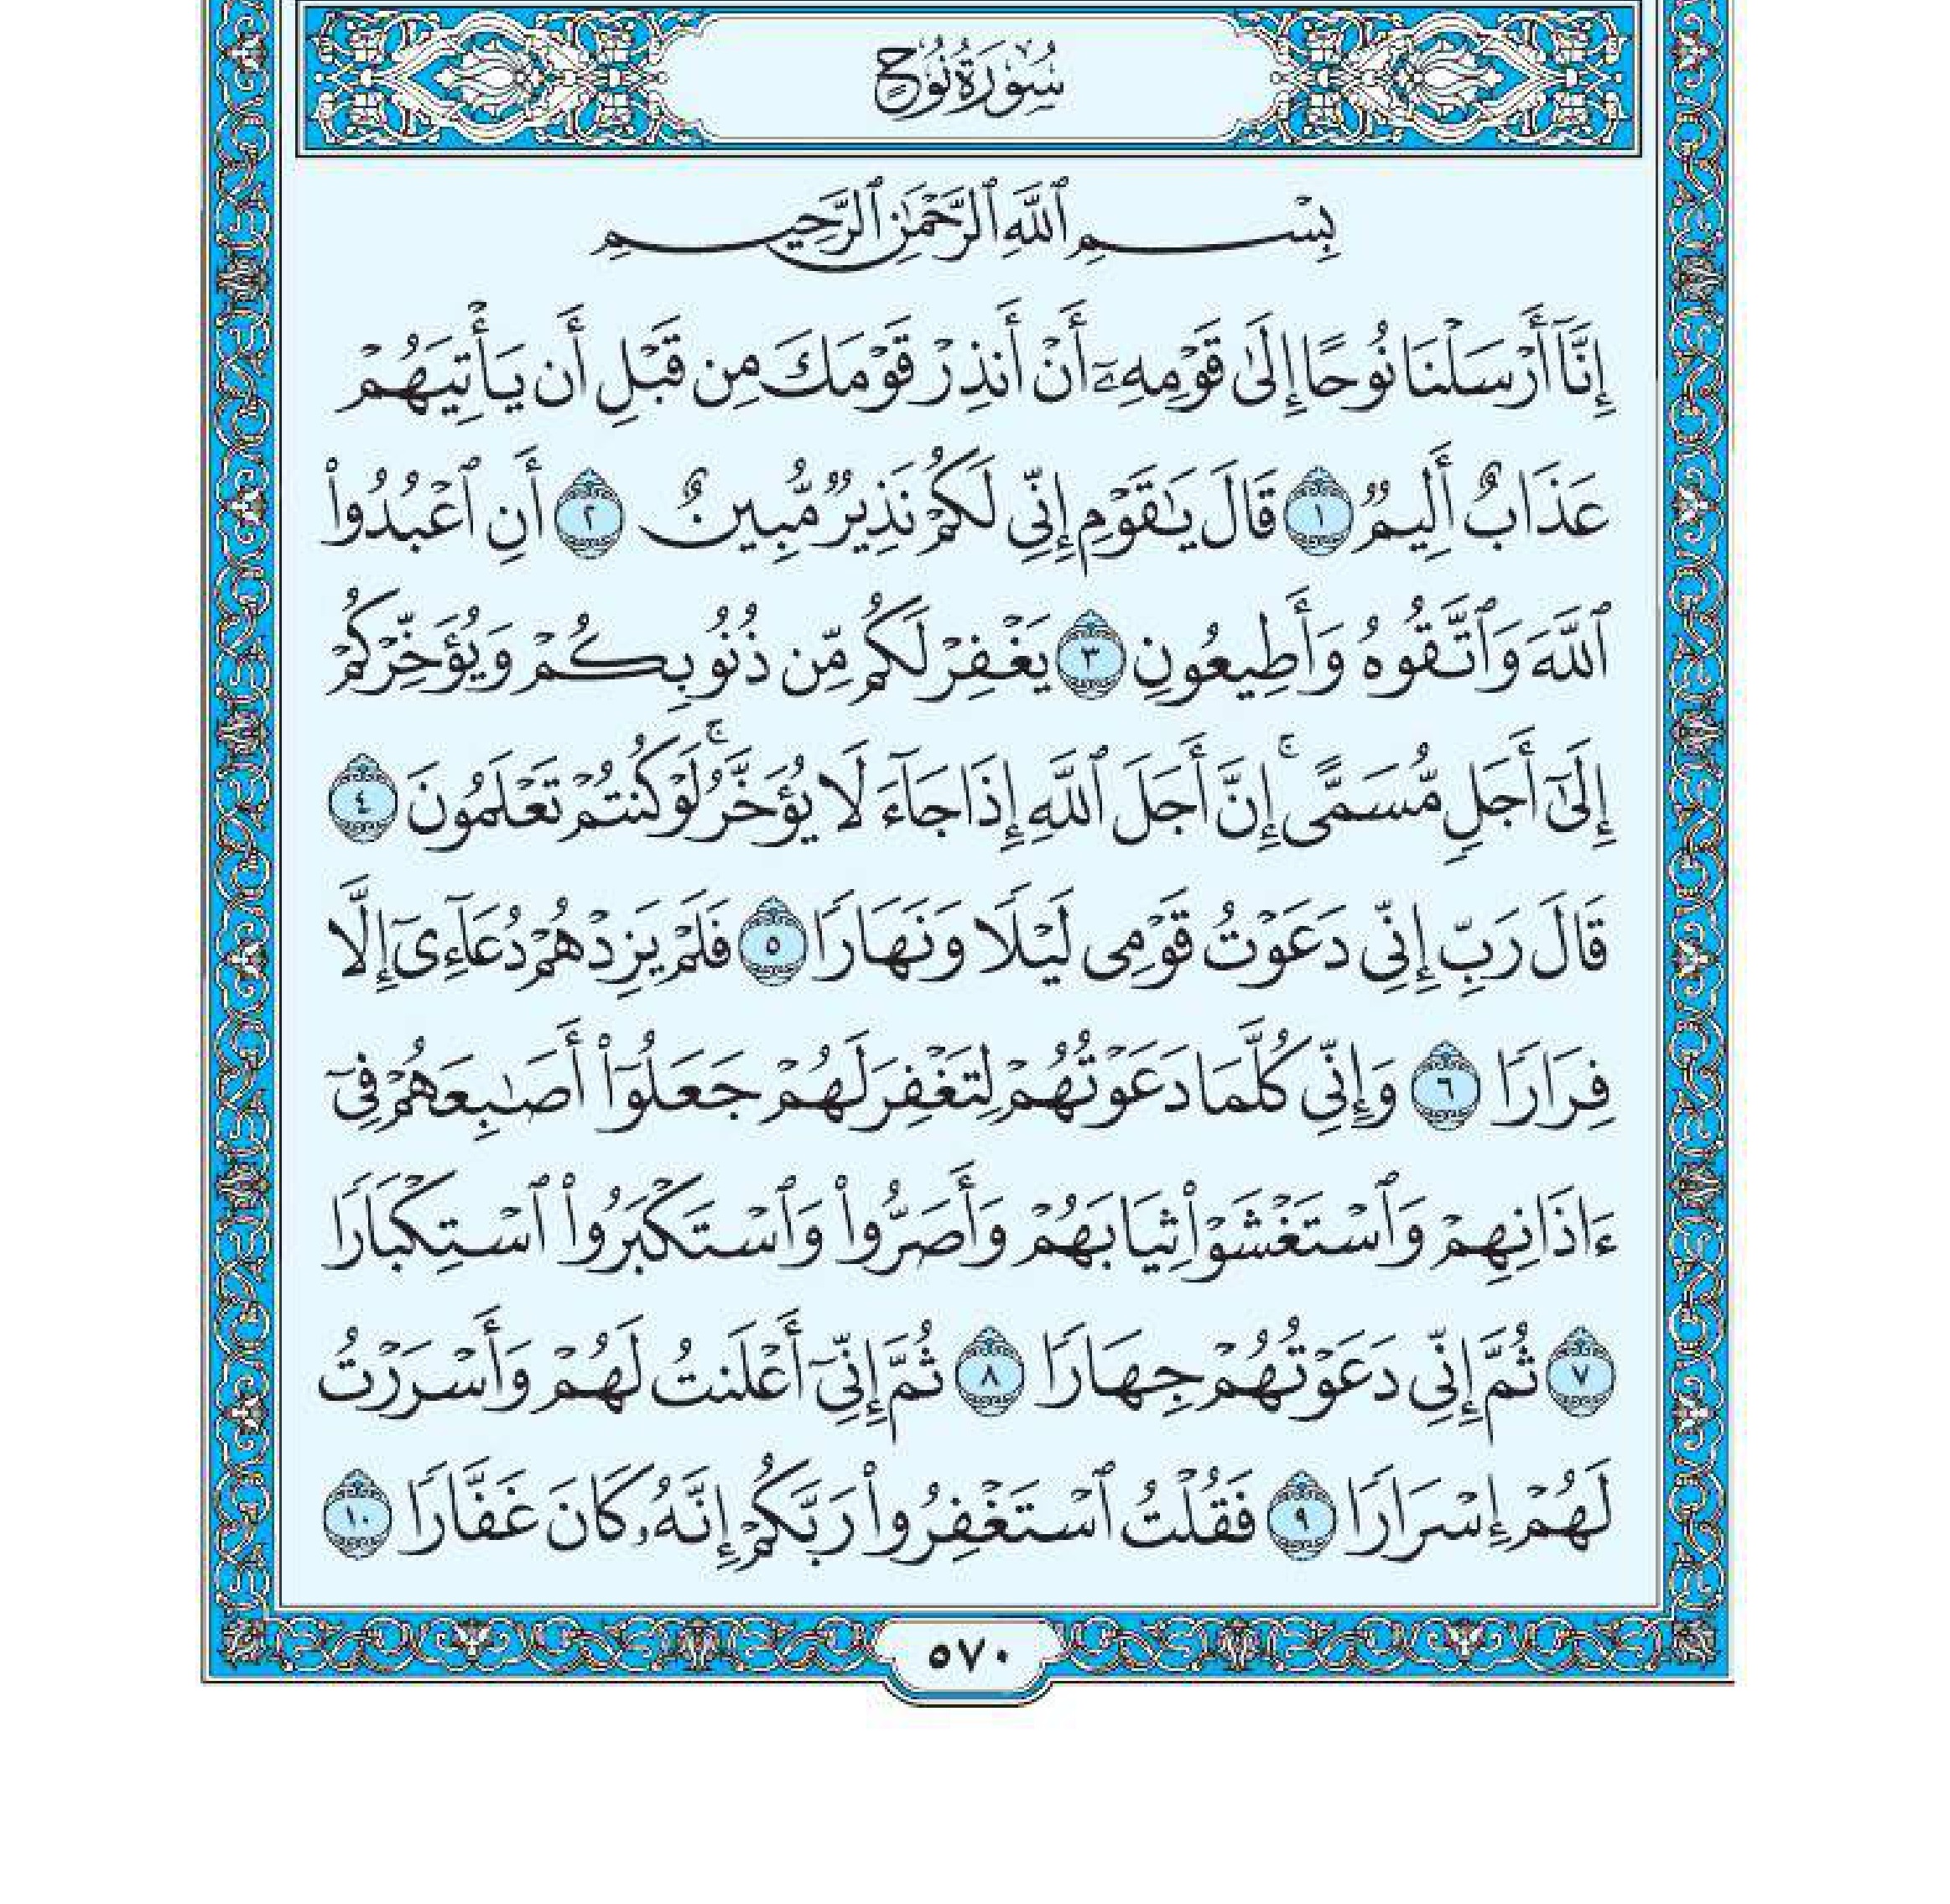 سُورَةُ نُوحٍ
بِسْمِ ٱللَّهِ ٱلرَّحْمَٰنِ ٱلرَّحِيمِ
إِنَّآ أَرْسَلْنَا نُوحًا إِلَىٰ قَوْمِهِۦٓ أَنْ أَنذِرْ قَوْمَكَ مِن قَبْلِ أَن يَأْتِيَهُمْ
عَذَابٌ أَلِيمٌ ١ قَالَ يَٰقَوْمِ إِنِّى لَكُمْ نَذِيرٌ مُّبِينٌ ٢ أَنِ ٱعْبُدُوا۟
ٱللَّهَ وَٱتَّقُوهُ وَأَطِيعُونِ ٣ يَغْفِرْ لَكُم مِّن ذُنُوبِكُمْ وَيُؤَخِّرْكُمْ
إِلَىٰٓ أَجَلٍ مُّسَمًّى ۚ إِنَّ أَجَلَ ٱللَّهِ إِذَا جَآءَ لَا يُؤَخَّرُ ۚ لَوْ كُنتُمْ تَعْلَمُونَ ٤
قَالَ رَبِّ إِنِّى دَعَوْتُ قَوْمِى لَيْلًا وَنَهَارًا ٥ فَلَمْ يَزِدْهُمْ دُعَآءِىٓ إِلَّا
فِرَارًا ٦ وَإِنِّى كُلَّمَا دَعَوْتُهُمْ لِتَغْفِرَ لَهُمْ جَعَلُوٓا۟ أَصَٰبِعَهُمْ فِىٓ
ءَاذَانِهِمْ وَٱسْتَغْشَوْا۟ ثِيَابَهُمْ وَأَصَرُّوا۟ وَٱسْتَكْبَرُوا۟ ٱسْتِكْبَارًا
٧ ثُمَّ إِنِّى دَعَوْتُهُمْ جِهَارًا ٨ ثُمَّ إِنِّىٓ أَعْلَنتُ لَهُمْ وَأَسْرَرْتُ
لَهُمْ إِسْرَارًا ٩ فَقُلْتُ ٱسْتَغْفِرُوا۟ رَبَّكُمْ إِنَّهُۥ كَانَ غَفَّارًا ١٠
٥٧٠